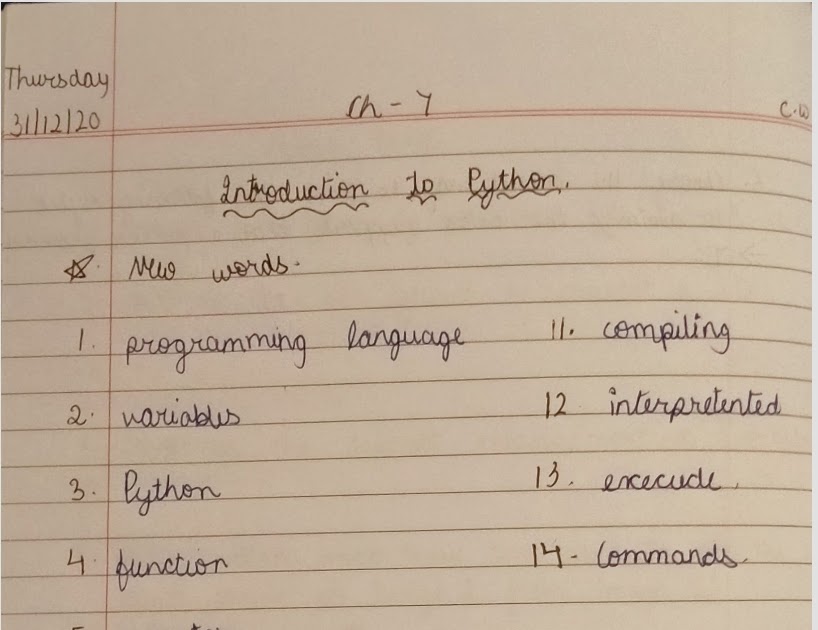 Thursday
31/12/20
Ch - 7
C.W
Introduction to Python.
☆. New words.
1. programming language
11. compiling
2. variables
12 interpretented
3. Python
13. execude.
4. function
14. Commands.